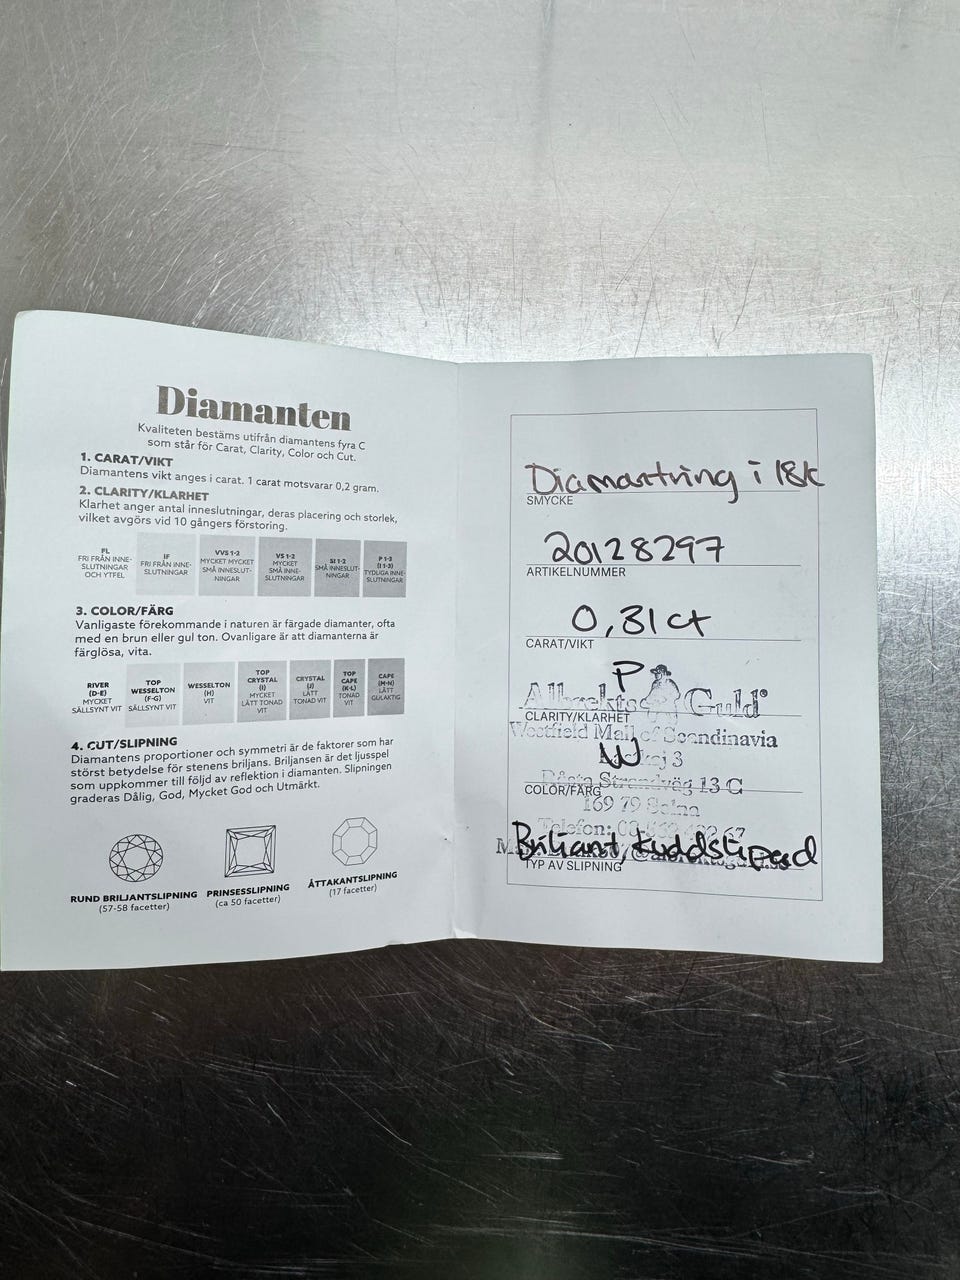 Diamanten
Kvaliteten bestäms utifrån diamantens fyra C
som står för Carat, Clarity, Color och Cut.
1. CARAT/VIKT
Diamantens vikt anges i carat. 1 carat motsvarar 0,2 gram.
2. CLARITY/KLARHET
Klarhet anger antal inneslutningar, deras placering och storlek,
vilket avgörs vid 10 gångers förstoring.
FL
FRI FRÅN INNE-
SLUTNINGAR
OCH YTFEL
IF
FRI FRÅN INNE-
SLUTNINGAR
VVS 1-2
MYCKET MYCKET
SMÅ INNESLUT-
NINGAR
VS 1-2
MYCKET
SMÅ INNE-
SLUTNINGAR
SI 1-2
SMÅ INNESLUT-
NINGAR
P 1-3
(I 1-3)
TYDLIGA INNE-
SLUTNINGAR
3. COLOR/FÄRG
Vanligaste förekommande i naturen är färgade diamanter, ofta
med en brun eller gul ton. Ovanligare är att diamanterna är
färglösa, vita.
RIVER
(D-E)
MYCKET
SÄLLSYNT VIT
TOP
WESSELTON
(F-G)
SÄLLSYNT VIT
WESSELTON
(H)
VIT
TOP
CRYSTAL
(I)
MYCKET
LÄTT TONAD
VIT
CRYSTAL
(J)
LÄTT
TONAD VIT
TOP
CAPE
(K-L)
TONAD
VIT
CAPE
(M-N)
LÄTT
GULAKTIG
4. CUT/SLIPNING
Diamantens proportioner och symmetri är de faktorer som har
störst betydelse för stenens briljans. Briljansen är det ljusspel
som uppkommer till följd av reflektion i diamanten. Slipningen
graderas Dålig, God, Mycket God och Utmärkt.
RUND BRILJANTSLIPNING
(57-58 facetter)
PRINSESSLIPNING
(ca 50 facetter)
ÅTTAKANTSLIPNING
(17 facetter)
Diamantring i 18k
SMYCKE
20128297
ARTIKELNUMMER
0,31ct
CARAT/VIKT
P
Albrekts Guld®
CLARITY/KLARHET
Westfield Mall of Scandinavia
W
3
Råsta Strandväg 13 C
COLOR/FÄRG
169 79 Solna
Telefon:
Briljant, kuddslipad
TYP AV SLIPNING